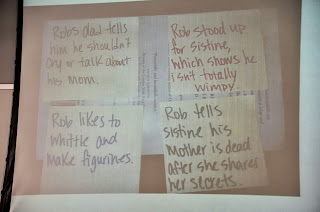 Robs dad tells
him he shouldn't
cry or talk about
his mom.
Rob stood up
for Sistine,
which shows he
isn't totally
wimpy.
Rob likes to
whittle and
make figurines.
Rob tells
sistine his
Mother is dead
after she shares
her secrets.